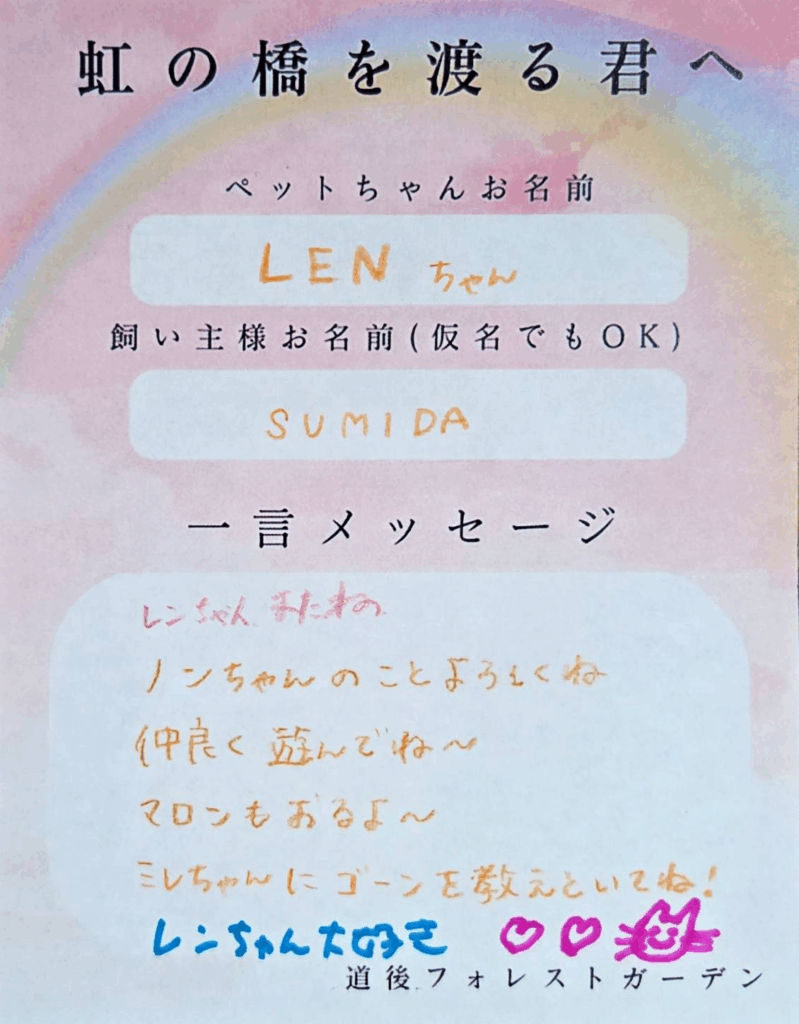 虹の橋を渡る君へ
ペットちゃんお名前
LEN ちゃん
飼い主様お名前(仮名でもOK)
SUMIDA
一言メッセージ
レンちゃん またねの
ノンちゃんのことよろしくね
仲良く遊んでね〜
マロンもおるよ〜
ミレちゃんにゴーンを教えといてね!
レンちゃん大好き ♡♡
道後フォレストガーデン